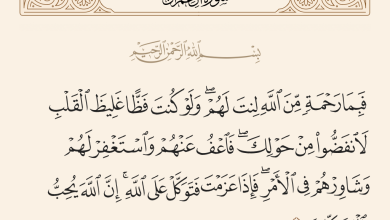 سورة آل عمران
بِسْمِ اللَّهِ الرَّحْمَٰنِ الرَّحِيمِ
فَبِمَا رَحْمَةٍ مِّنَ اللَّهِ لِنتَ لَهُمْ ۖ وَلَوْ كُنتَ فَظًّا غَلِيظَ الْقَلْبِ
لَانفَضُّوا مِنْ حَوْلِكَ ۖ فَاعْفُ عَنْهُمْ وَاسْتَغْفِرْ لَهُمْ
وَشَاوِرْهُمْ فِي الْأَمْرِ ۖ فَإِذَا عَزَمْتَ فَتَوَكَّلْ عَلَى اللَّهِ ۚ إِنَّ اللَّهَ يُحِبُّ